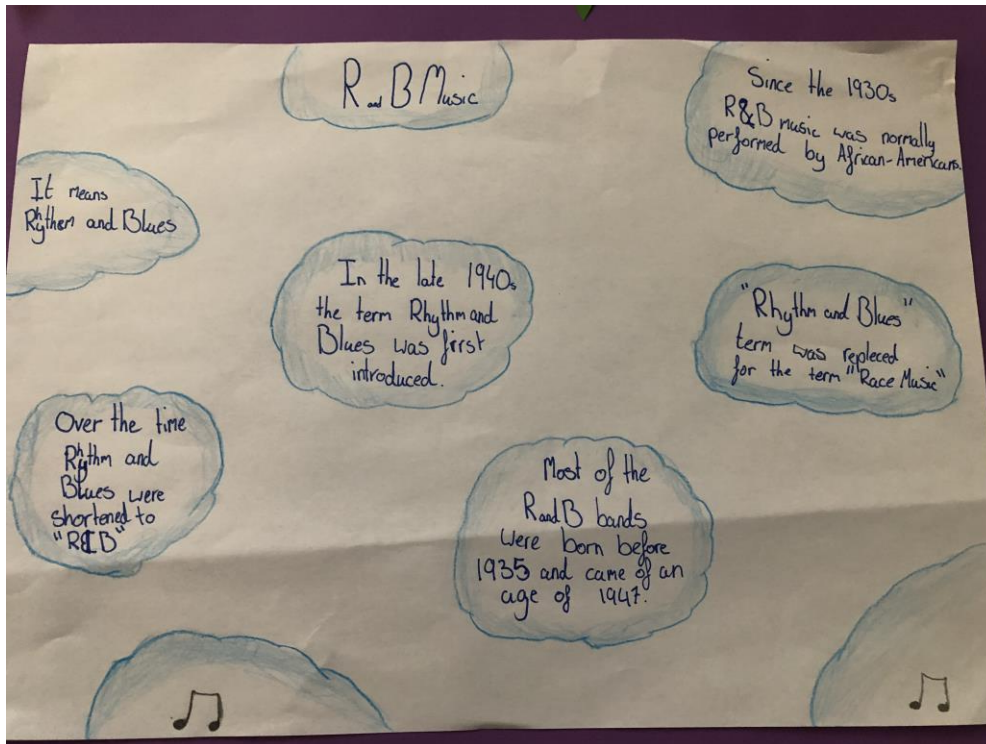 R and B Music
Since the 1930s
R&B music was normally
performed by African-Americans.
It means
Rhythem and Blues
In the late 1940s
the term Rhythm and
Blues was first
introduced.
"Rhythm and Blues"
term was repleced
for the term "Race Music"
Over the time
Rhythm and
Blues were
shortened to
"R&B"
Most of the
R and B bands
were born before
1935 and came of an
age of 1947.